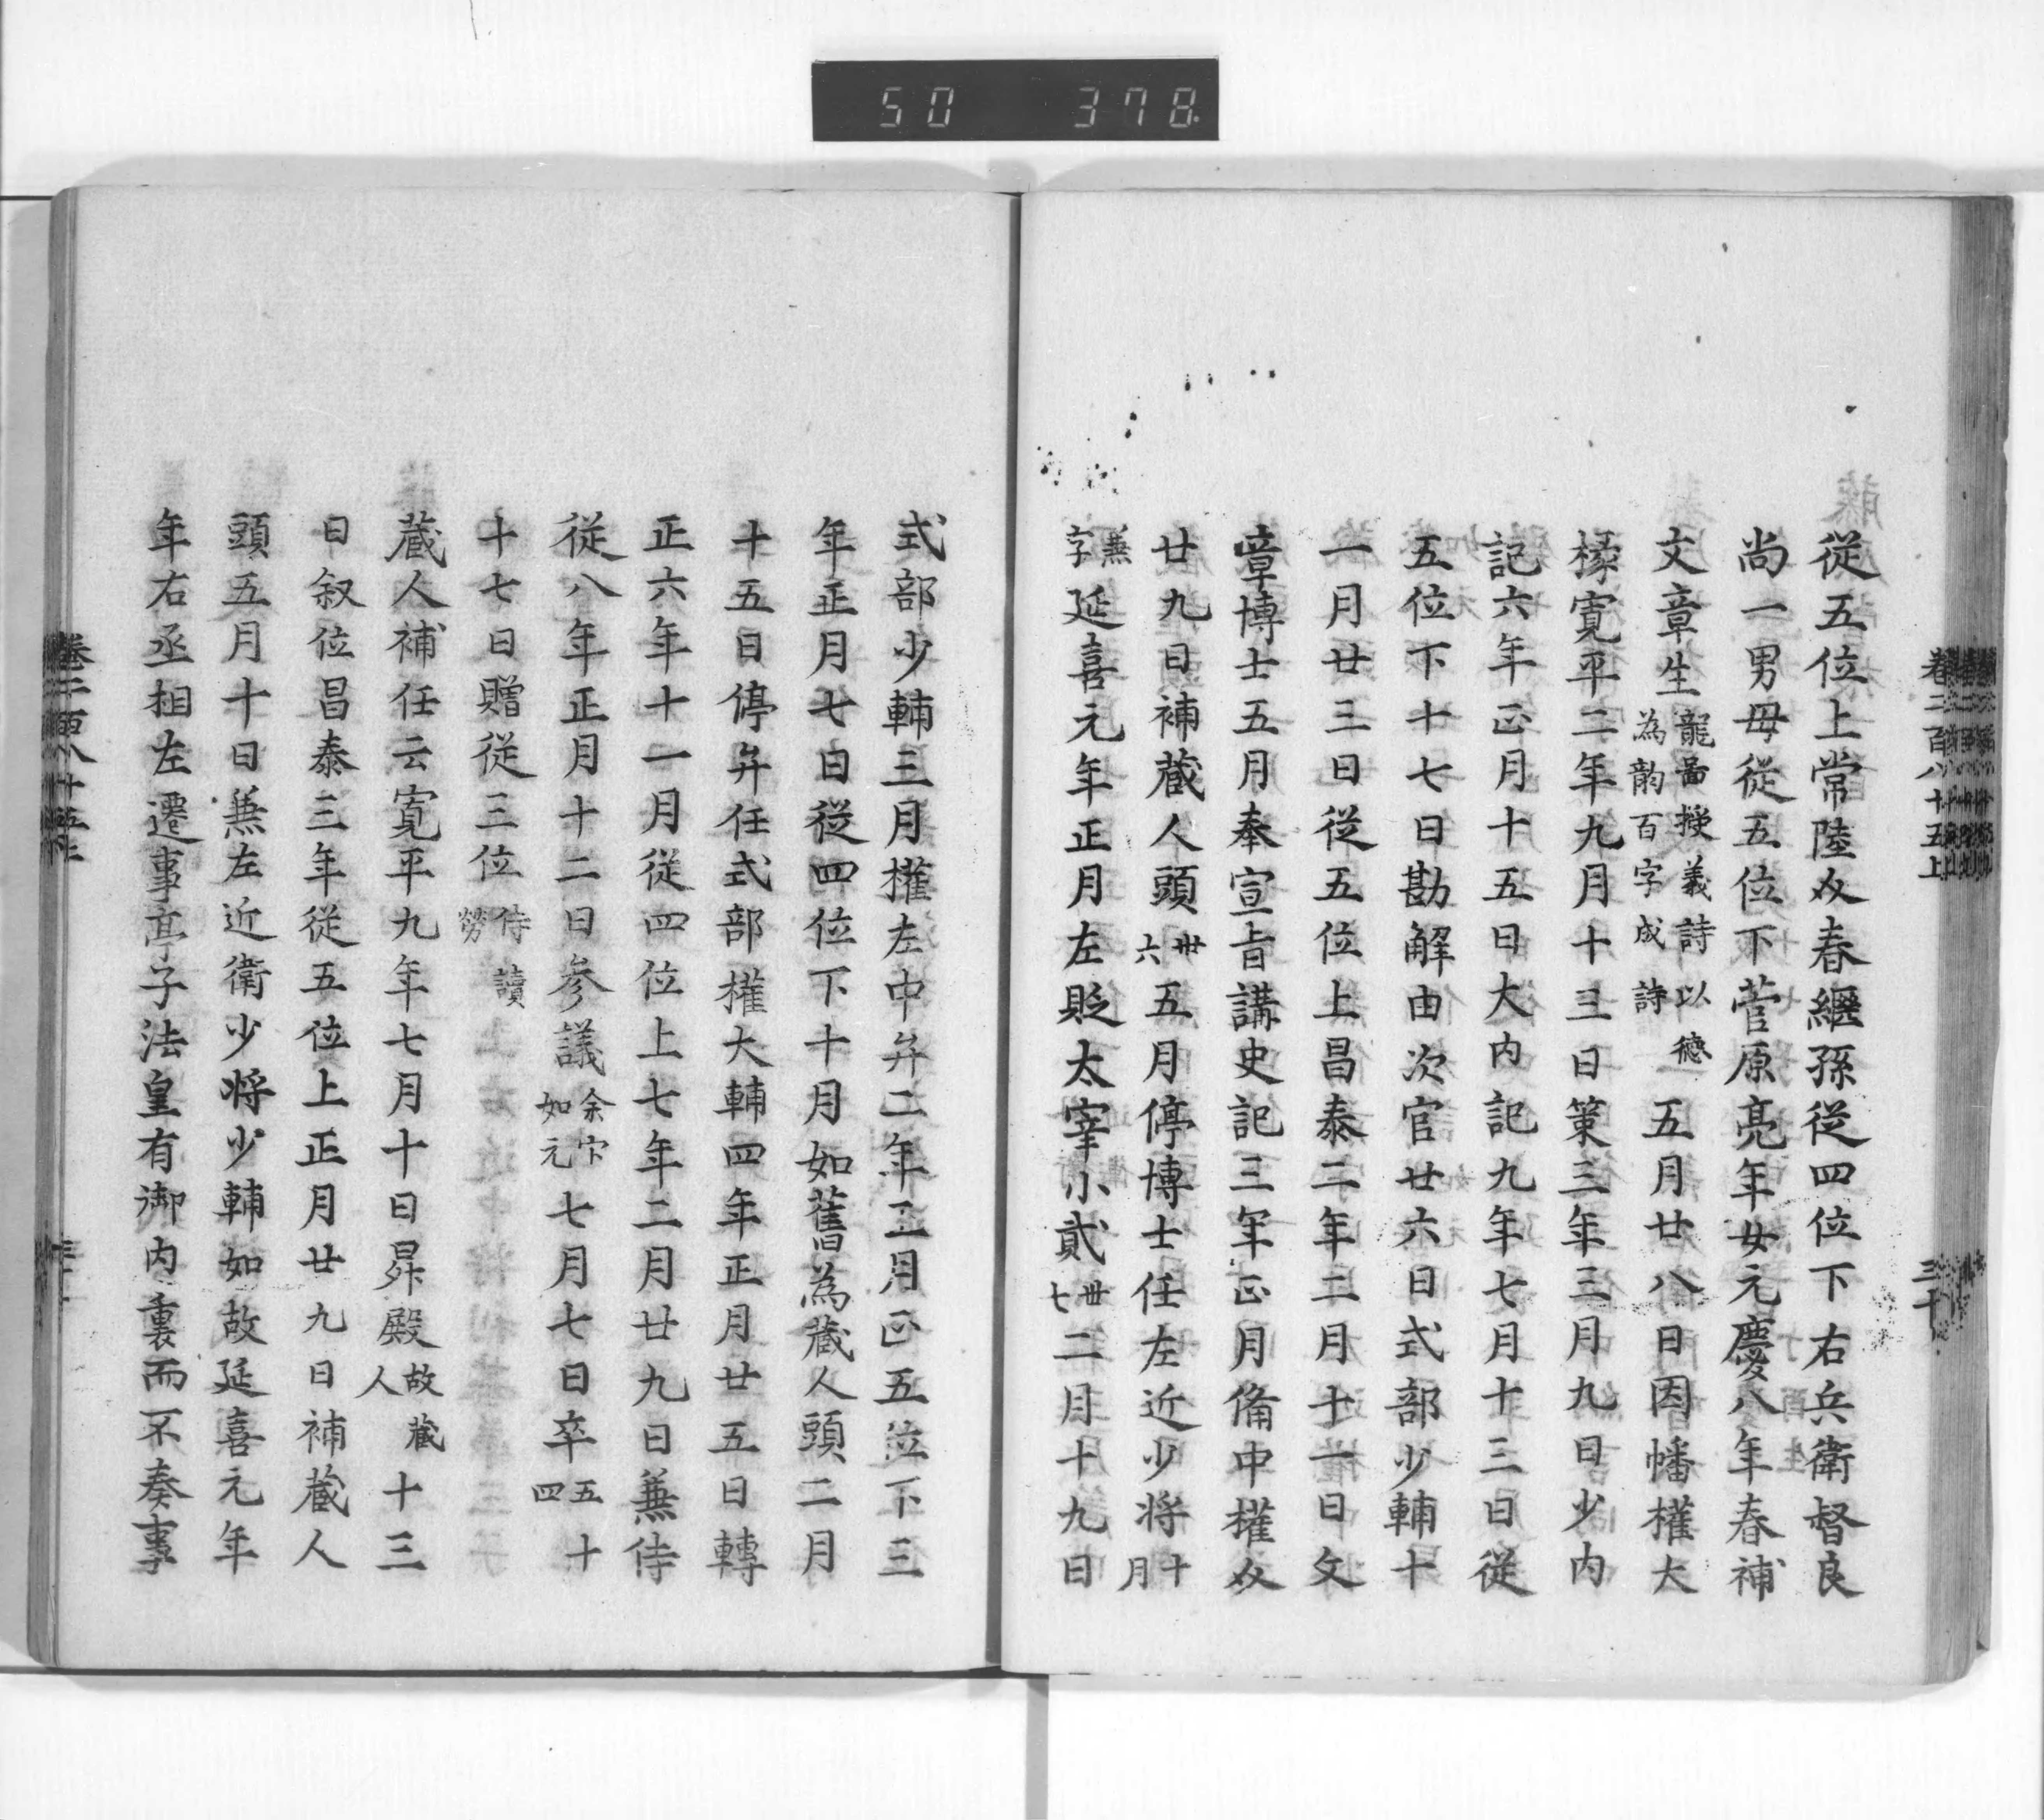 50 378
卷二百八十五上
三十
從五位上常陸介春繼孫従四位下右兵衛督良
尚一男母従五位下菅原亮年女元慶八年春補
文章生龍啚授義詩以德為韵百字成詩五月廿八日因幡權大
掾寛平二年九月十三日策三年三月九日少内
記六年正月十五日大内記九年七月十三日従
五位下十七日勘解由次官廿六日式部少輔十
一月廿三日従五位上昌泰二年二月十一日文
章博士五月奉宣旨講史記三年正月備中權介
廿九日補蔵人頭卅六五月停博士任左近少将十月
兼字延喜元年正月左貶太宰小貳卅七二月十九日
式部少輔三月權左中弁二年正月正五位下三
年正月七日従四位下十月如舊為蔵人頭二月
十五日停弁任式部權大輔四年正月廿五日轉
正六年十一月従四位上七年二月廿九日兼侍
従八年正月十二日参議余官如元七月七日卒五十四
十七日贈従三位侍讀勞
蔵人補任云寛平九年七月十日昇殿故蔵人十三
日叙位昌泰三年従五位上正月廿九日補蔵人
頭五月十日兼左近衛少将少輔如故延喜元年
年右丞相左遷事亭子法皇有御内裏而不奏事
卷二百八十五上